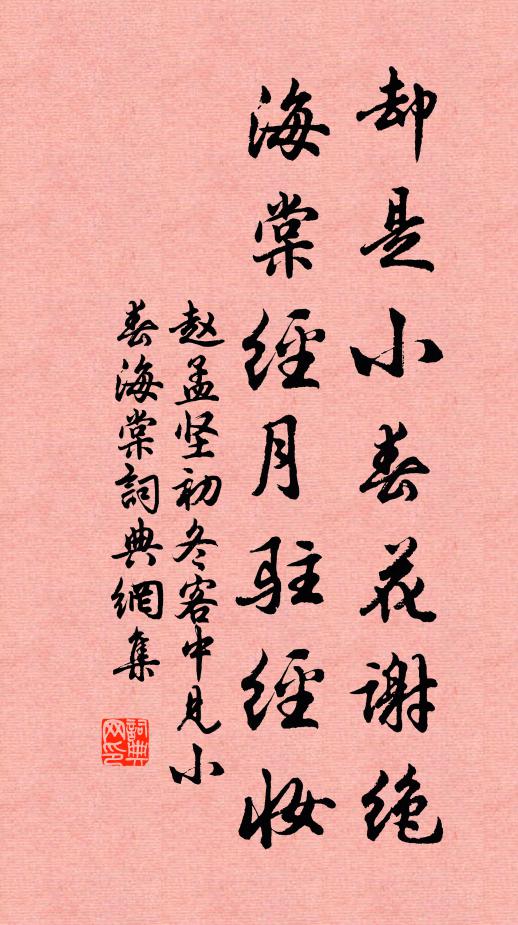 却是小春花谢绝
海棠經月驻經妆
赵孟坚初冬客中见小
春海棠詞典網集
詞典网印